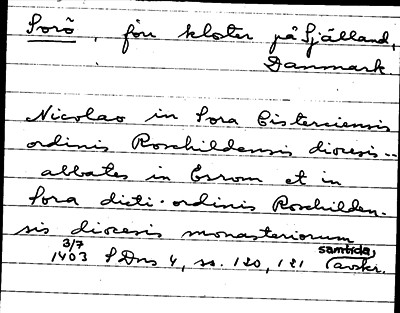 Sorö, förr kloster på Själland,
Danmark.
Nicolao in Sora Cisterciensis
ordinis Roschildensis diocesis --
abbates in Esrom et in
Sora dicti · ordinis Roschilden-
sis diocesis monasteriorum
3/7 1403 SDns 4, ss. 120, 121 (samtida avskr.